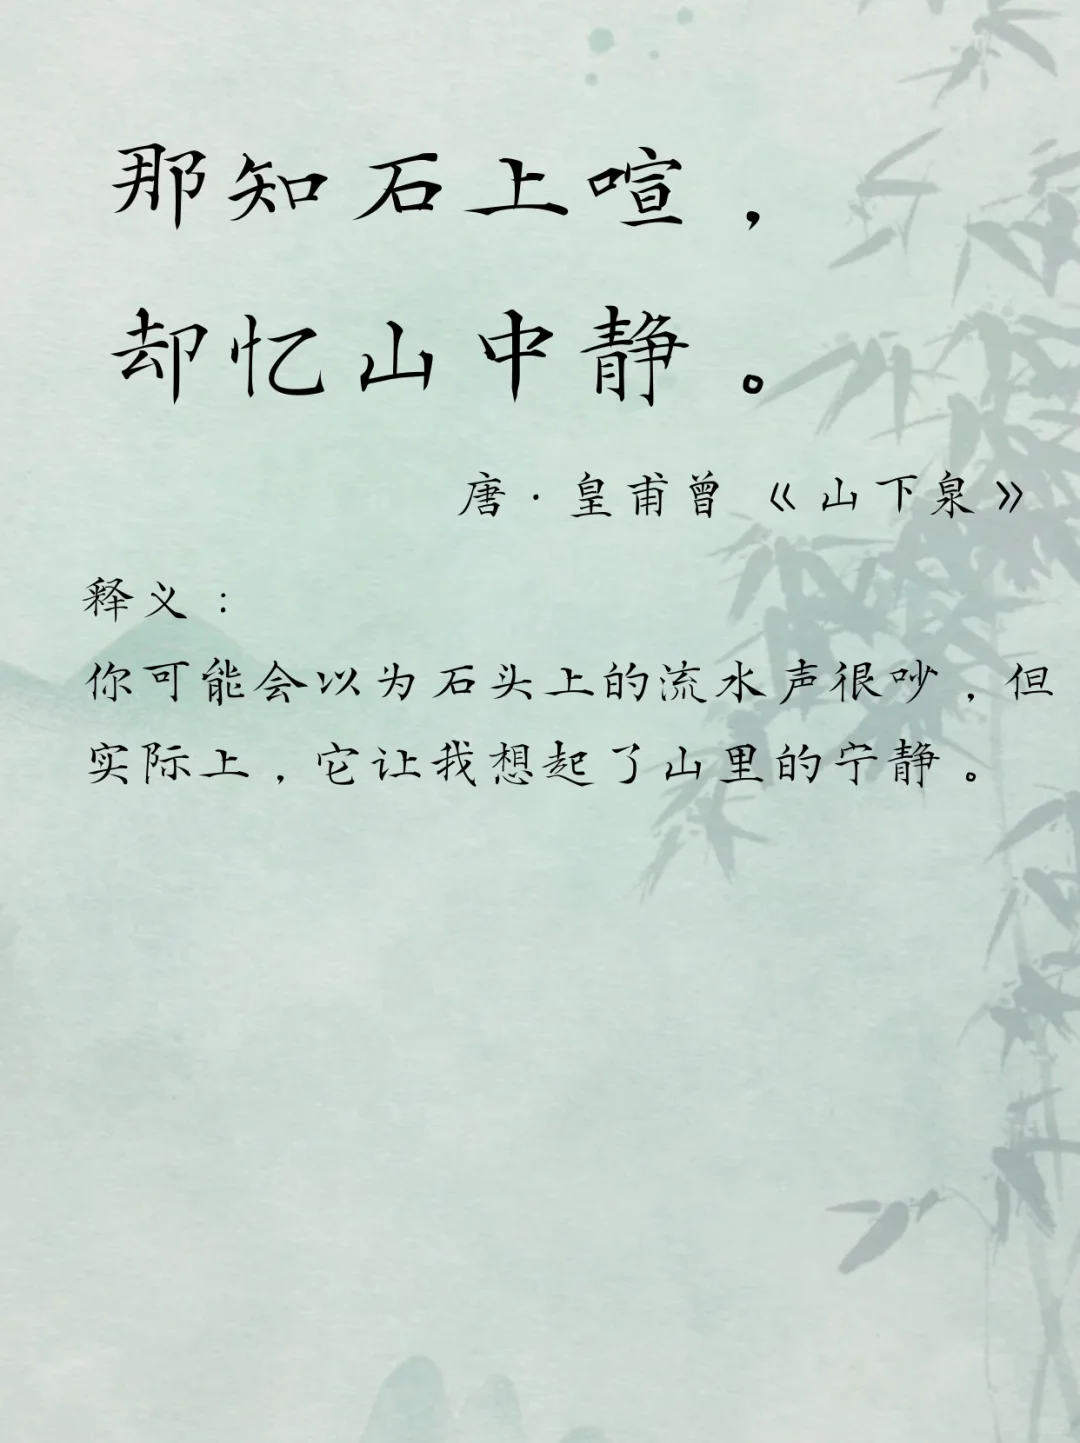 那知石上喧，
却忆山中静。
唐·皇甫曾《山下泉》
释义：
你可能会以为石头上的流水声很吵，但
实际上，它让我想起了山里的宁静。